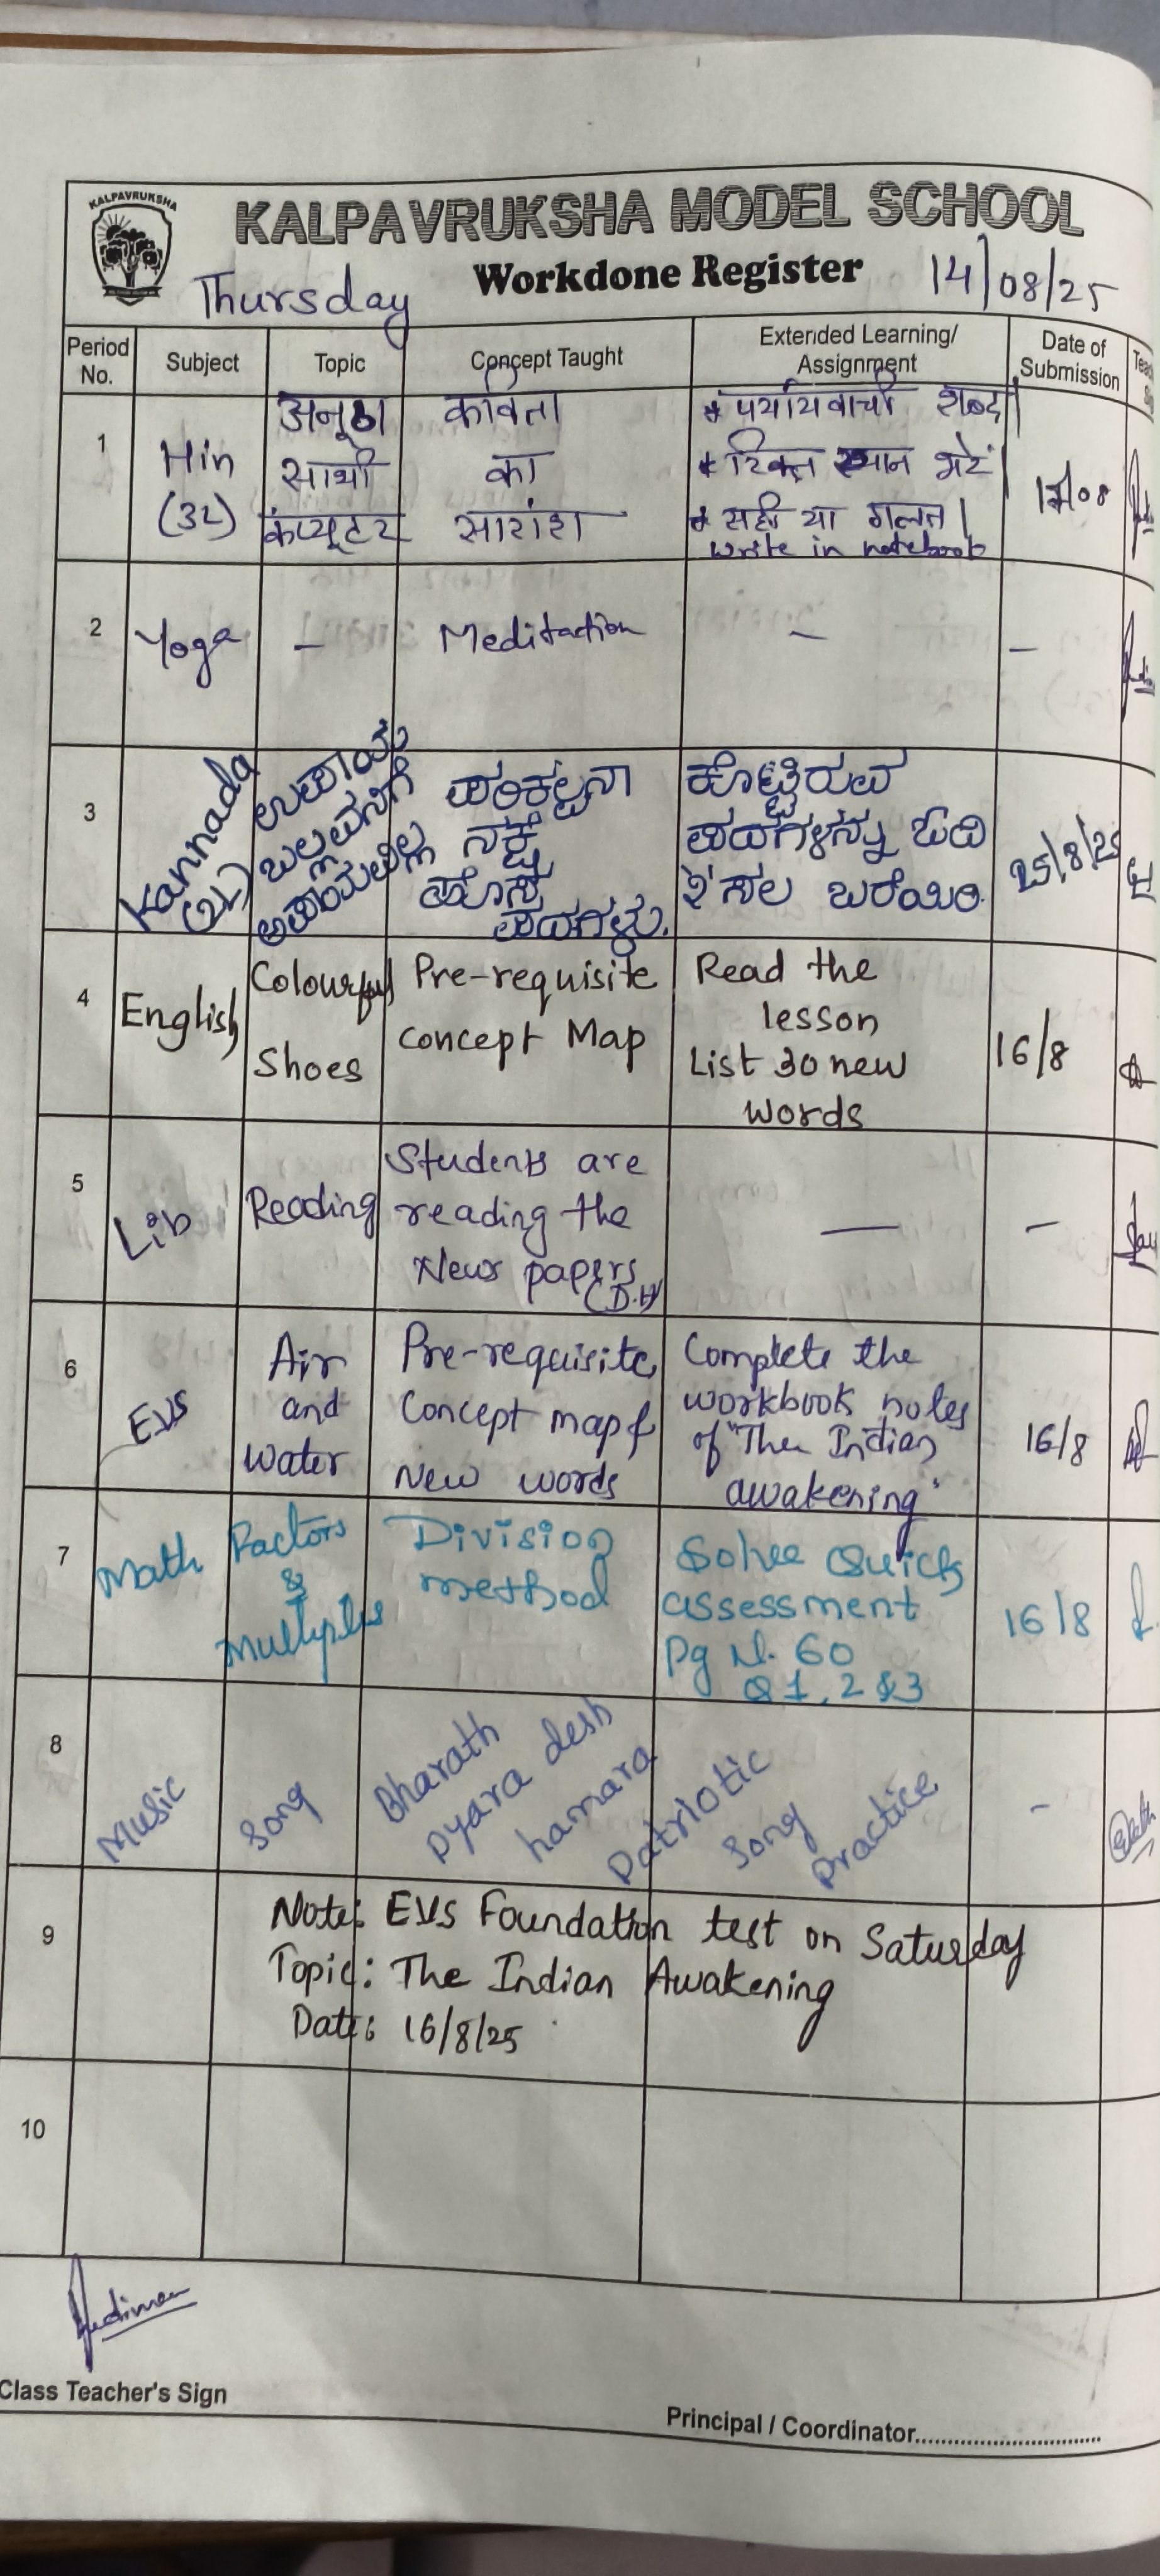 KALPAVRUKSHA
KALPAVRUKSHA MODEL SCHOOL
Workdone Register
Thursday
14/08/25
Period No.
Subject
Topic
Concept Taught
Extended Learning/
Assignment
Date of
Submission
1
Hin
(3L)
अनूठा
साथी
कंप्यूटर
कविता
का
सारांश
* पर्यायवाची शब्द
* रिक्त स्थान भरें
* सही या गलत
write in notebook
17/08
2
Yoga
-
Meditation
-
-
3
Kannada
(2L)
ಉಪಾಯ
ಬಲ್ಲವನಿಗೆ
ಅಪಾಯವಿಲ್ಲ
ಪರಿಕಲ್ಪನಾ
ನಕ್ಷೆ
ಹೊಸ
ಪದಗಳು.
ಕೊಟ್ಟಿರುವ
ಪದಗಳನ್ನು ಓದಿ
ಸಲ ಬರೆಯಿರಿ.
25/8/25
4
English
Colourful
Shoes
Pre-requisite
concept Map
Read the
lesson
List 30 new
words
16/8
5
Lib
Reading
Students are
reading the
News papers
(D.H)
-
-
6
EVS
Air
and
water
Pre-requisite
Concept map &
New words
Complete the
workbook notes
of "The Indian
awakening"
16/8
7
Math
Factors
&
Multiples
Division
method
Solve Quick
assessment
Pg N. 60
Q 1, 2 & 3
16/8
8
Music
Song
Bharath
pyara desh
hamara
Patriotic
Song
Practice
-
9
Note: EVS Foundation test on Saturday
Topic: The Indian Awakening
Date: 16/8/25
10
Class Teacher's Sign
Principal / Coordinator